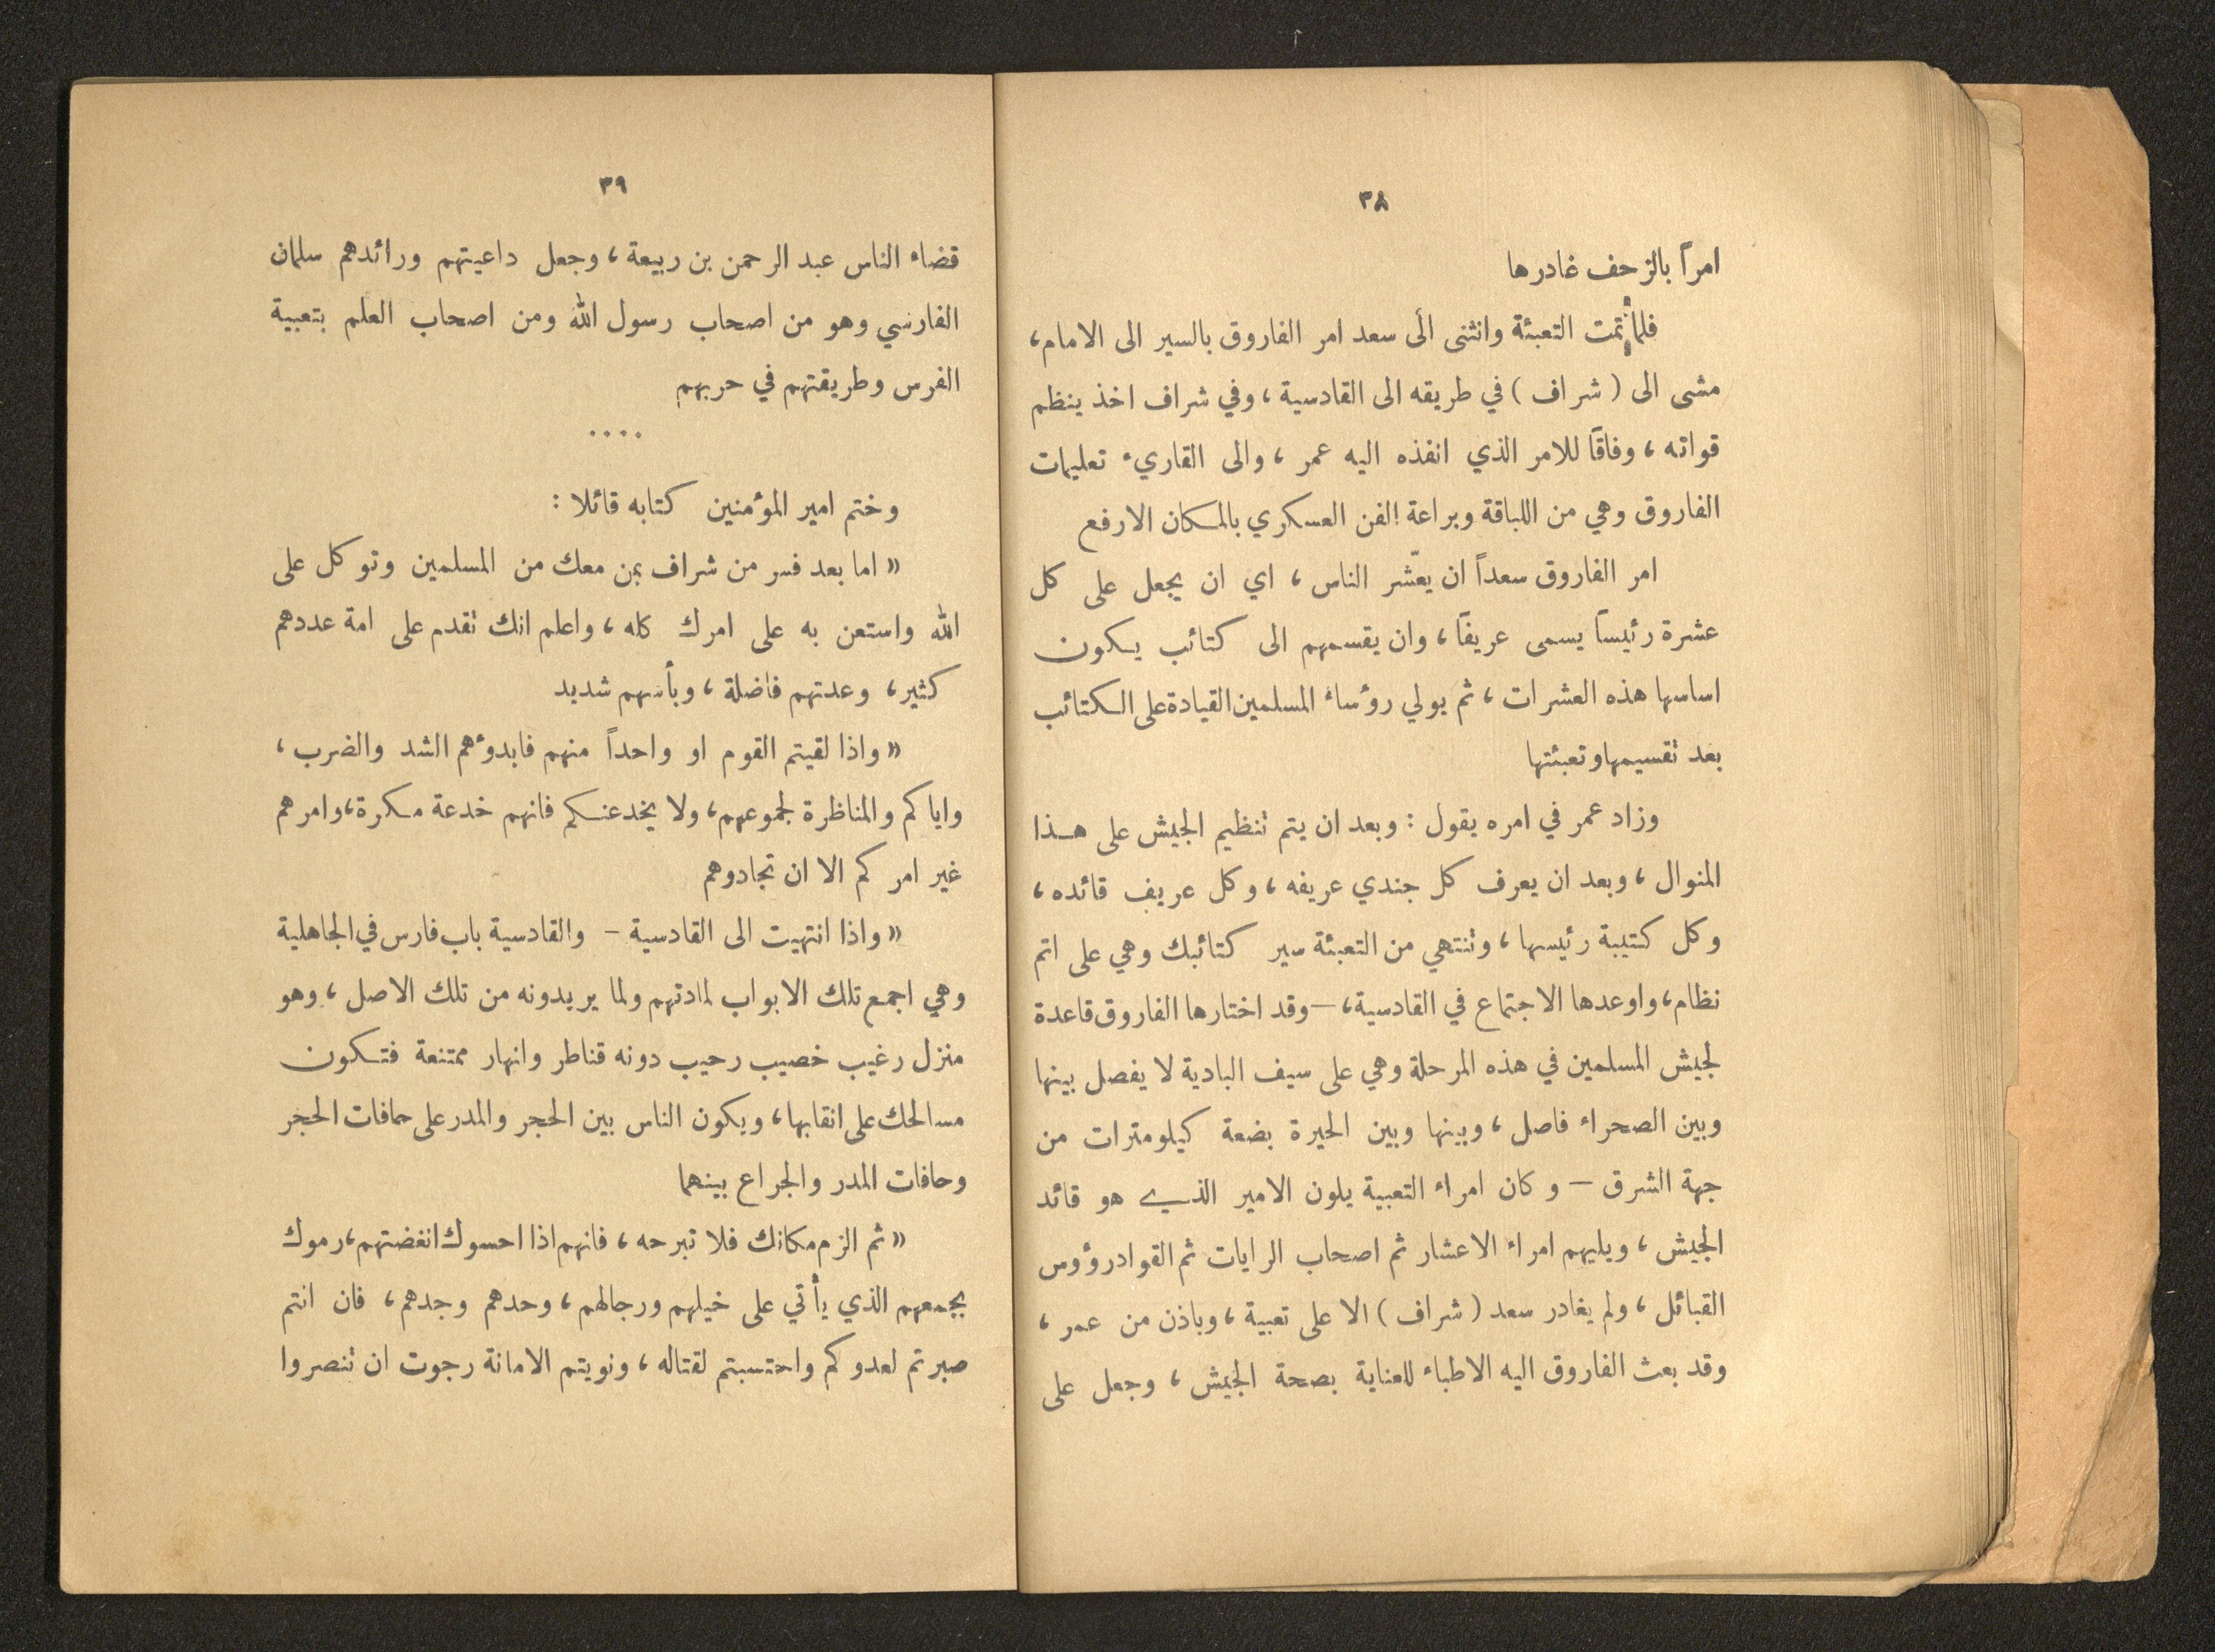 ٣٨
امراً بالزحف غادرها
فلما تمت التعبئة وانثنى الى سعد امر الفاروق بالسير الى الامام،
مشى الى ( شراف ) في طريقه الى القادسية ، وفي شراف اخذ ينظم
قواته ، وفاقاً للامر الذي انفذه اليه عمر ، والى القاريء تعليمات
الفاروق وهي من اللباقة وبراعة الفن العسكري بالمكان الارفع
امر الفاروق سعداً ان يعشّر الناس ، اي ان يجعل على كل
عشرة رئيساً يسمى عريفاً ، وان يقسمهم الى كتائب يكون
اساسها هذه العشرات ، ثم يولي رؤساء المسلمين القيادة على الكتائب
بعد تقسيمها وتعبئتها
وزاد عمر في امره يقول : وبعد ان يتم تنظيم الجيش على هذا
المنوال ، وبعد ان يعرف كل جندي عريفه ، وكل عريف قائده ،
وكل كتيبة رئيسها ، وتنتهي من التعبئة سير كتائبك وهي على اتم
نظام ، واوعدها الاجتماع في القادسية ، – وقد اختارها الفاروق قاعدة
لجيش المسلمين في هذه المرحلة وهي على سيف البادية لا يفصل بينها
وبين الصحراء فاصل ، وبينها وبين الحيرة بضعة كيلومترات من
جهة الشرق – وكان امراء التعبية يلون الامير الذي هو قائد
الجيش ، ويليهم امراء الاعشار ثم اصحاب الرايات ثم القواد رؤوس
القبائل ، ولم يغادر سعد ( شراف ) الا على تعبية ، وباذن من عمر ،
وقد بعث الفاروق اليه الاطباء للعناية بصحة الجيش ، وجعل على
٣٩
قضاء الناس عبد الرحمن بن ربيعة ، وجعل داعيتهم ورائدهم سلمان
الفارسي وهو من اصحاب رسول الله ومن اصحاب العلم بتعبية
الفرس وطريقتهم في حربهم
....
وختم امير المؤمنين كتابه قائلا :
« اما بعد فسر من شراف بمن معك من المسلمين وتوكل على
الله واستعن به على امرك كله ، واعلم انك تقدم على امة عددهم
كثير ، وعدتهم فاضلة ، وبأسهم شديد
« واذا لقيتم القوم او واحداً منهم فابدؤهم الشد والضرب ،
واياكم والمناظرة لجموعهم ، ولا يخدعنكم فانهم خدعة مكرة ، وامرهم
غير امركم الا ان تجادوهم
« واذا انتهيت الى القادسية – والقادسية باب فارس في الجاهلية
وهي اجمع تلك الابواب لمادتهم ولما يريدونه من تلك الاصل ، وهو
منزل رغيب خصيب رحيب دونه قناطر وانهار ممتنعة فتكون
مسالحك على انقابها ، ويكون الناس بين الحجر والمدر على حافات الحجر
وحافات المدر والجراع بينهما
« ثم الزم مكانك فلا تبرحه ، فانهم اذا احسوك انغضتهم ، رموك
بجمعهم الذي يأتي على خيلهم ورجالهم ، وحدهم وجدهم ، فان انتم
صبرتم لعدوكم واحتسبتم لقتاله ، ونويتم الامانة رجوت ان تنصروا